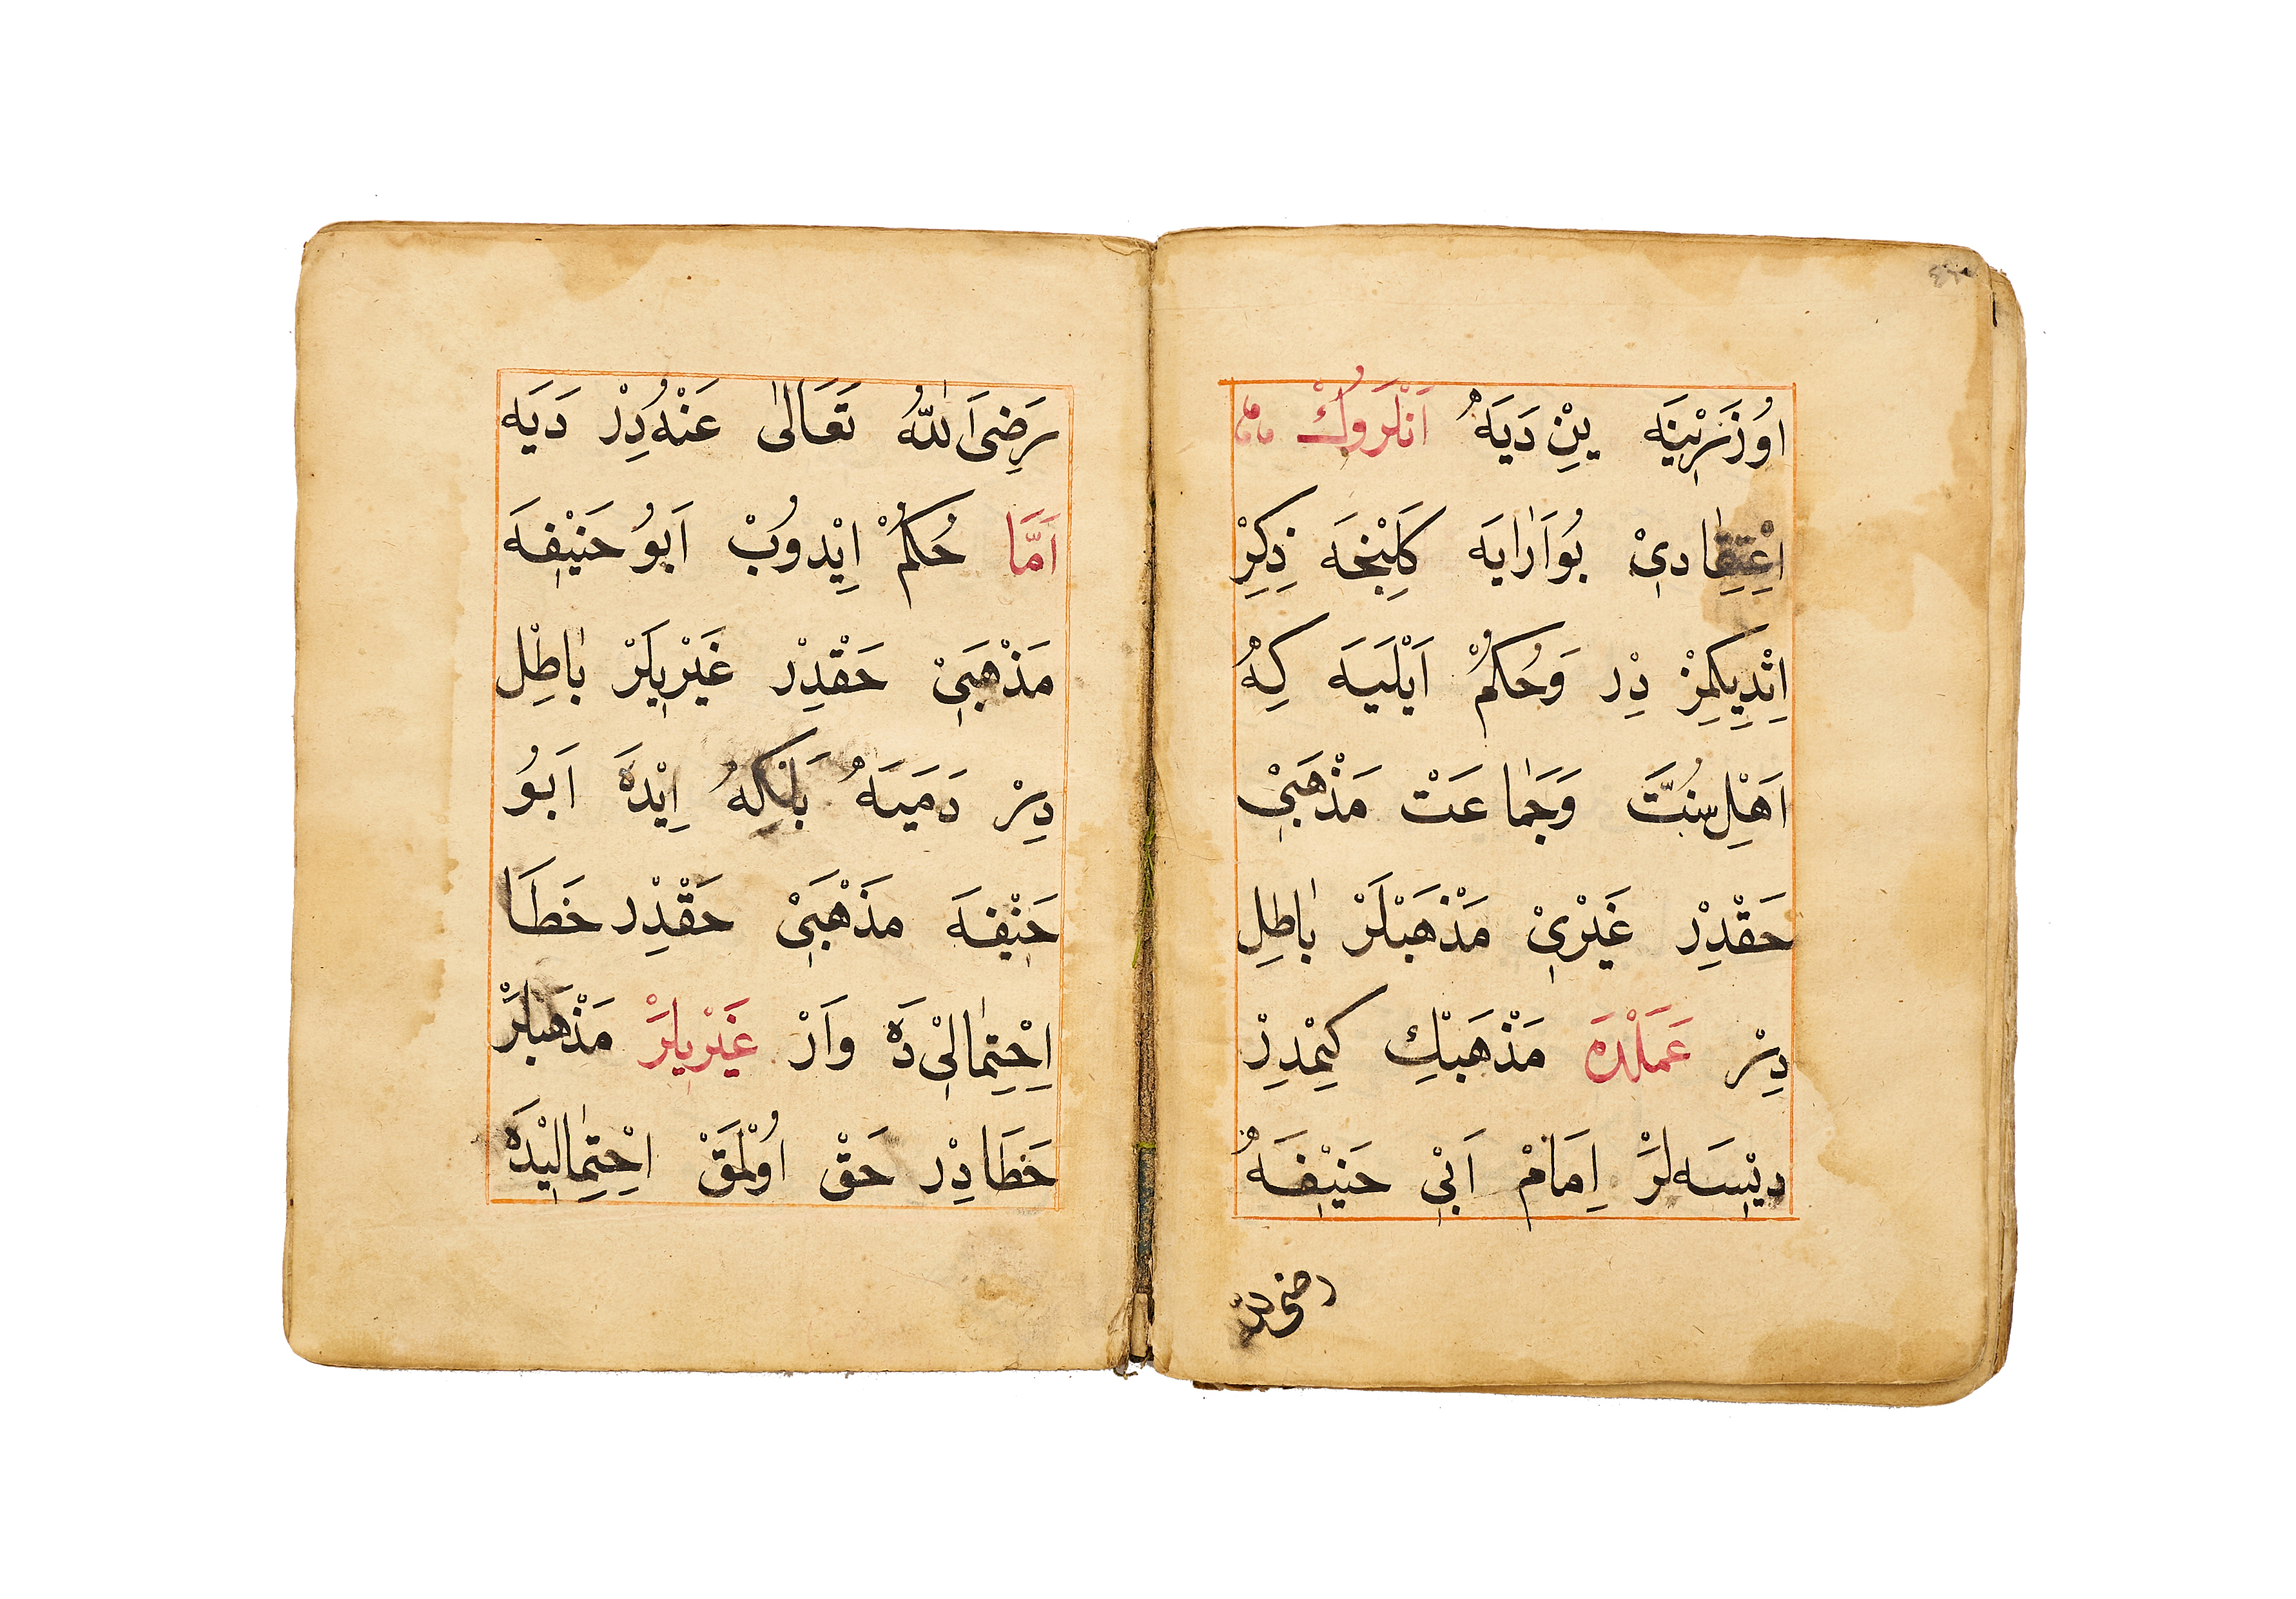 اُوزَرْينَه يِنْ دَيَهُ اَنْلَرُوكْ
اِعْتِقَادِىْ بُوارَايَه كَلِينْجَه ذِكِرْ
اِتْدِيكِمِزْ دِرْ وَحُكُمْ اَيْلَيَه كِهُ
اَهْلِ سُنَّتْ وَجَمَاعَتْ مَذْهَبِىْ
حَقْدِرْ غَيْرِىْ مَذْهَبْلَرْ بَاطِل
دِرْ عَمَلْدَه مَذْهَبِكْ كِيمْدِرْ
دِيْسَه لَرْ اِمَامْ اَبِىْ حَنِيْفَهُ
رَضِىَ اللّٰهُ تَعَالٰى عَنْهُدِرْ دَيَه
اَمَّا حُكُمْ اِيْدُوبْ اَبُو حَنِيْفَه
مَذْهَبِىْ حَقْدِرْ غَيْرِيلَرْ بَاطِلْ
دِرْ دَمَيَهُ بَلْكِهُ اِيْدَه اَبُو
حَنِيْفَه مَذْهَبِىْ حَقْدِرْ خَطَا
اِحْتِمَالِىْ دَه وَارْ غَيْرِيلَرْ مَذْهَبلَرْ
خَطَادِرْ حَقْ اُولْمَقْ اِحْتِمَالِيْدَه